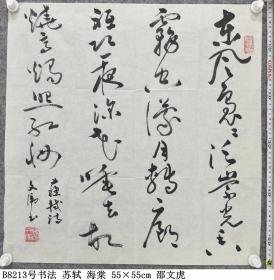 东风袅々泛崇光香
霧空濛月轉廊
祗恐夜深花睡去故
燒高燭照红妝
蘇軾詩
文虎书
B8213号书法 苏轼 海棠 55×55cm 邵文虎